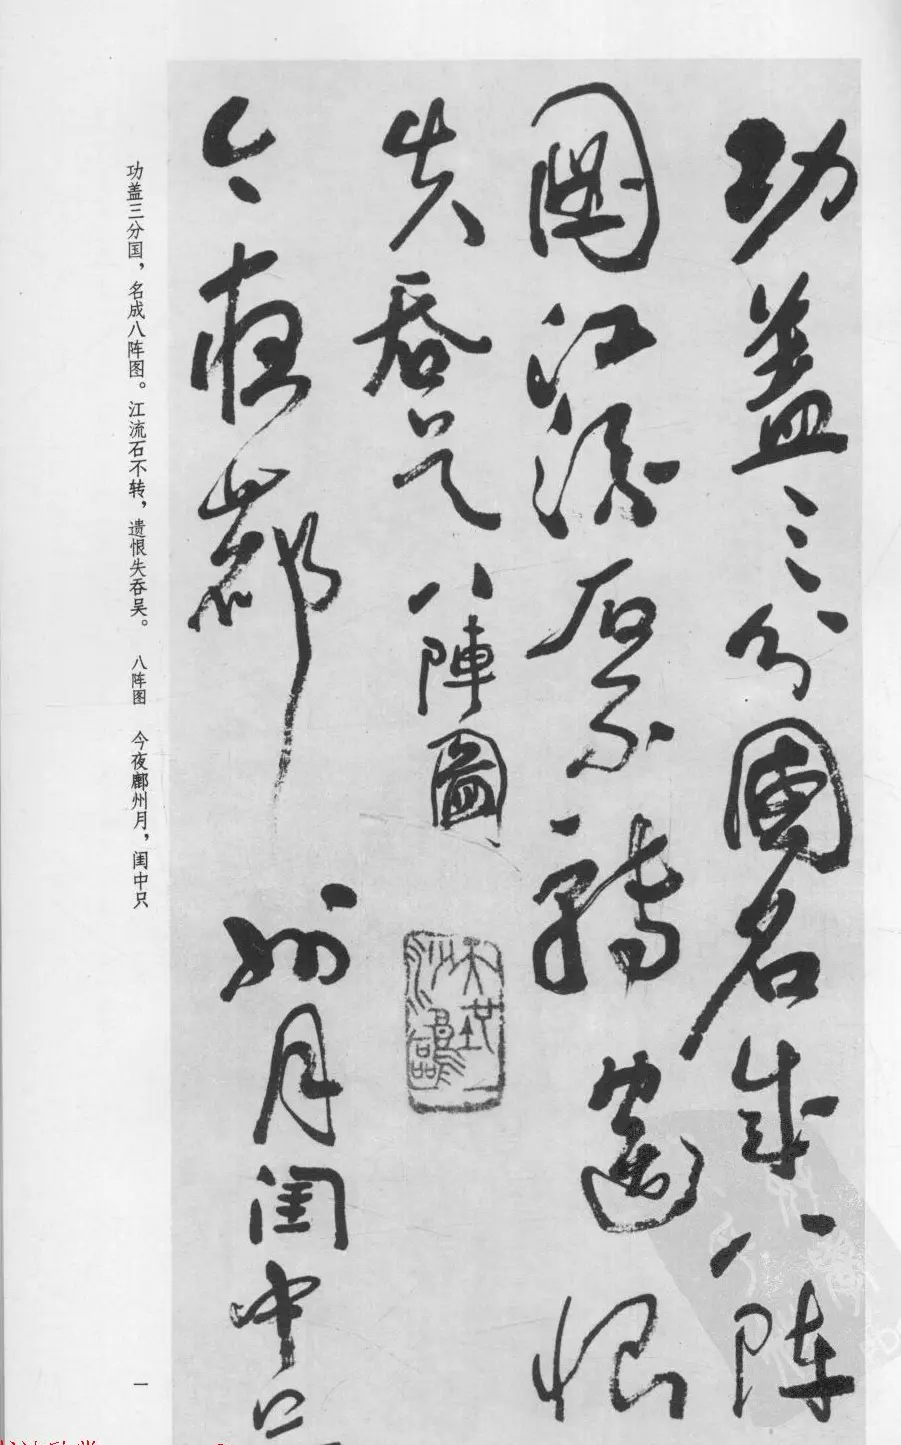 功盖三分國名成八陣
圖江流石不轉遺恨
失吞吴八陣圖
今夜鄜州月閨中只
功盖三分国，名成八阵图。江流石不转，遗恨失吞吴。 八阵图 今夜鄜州月，闺中只
一